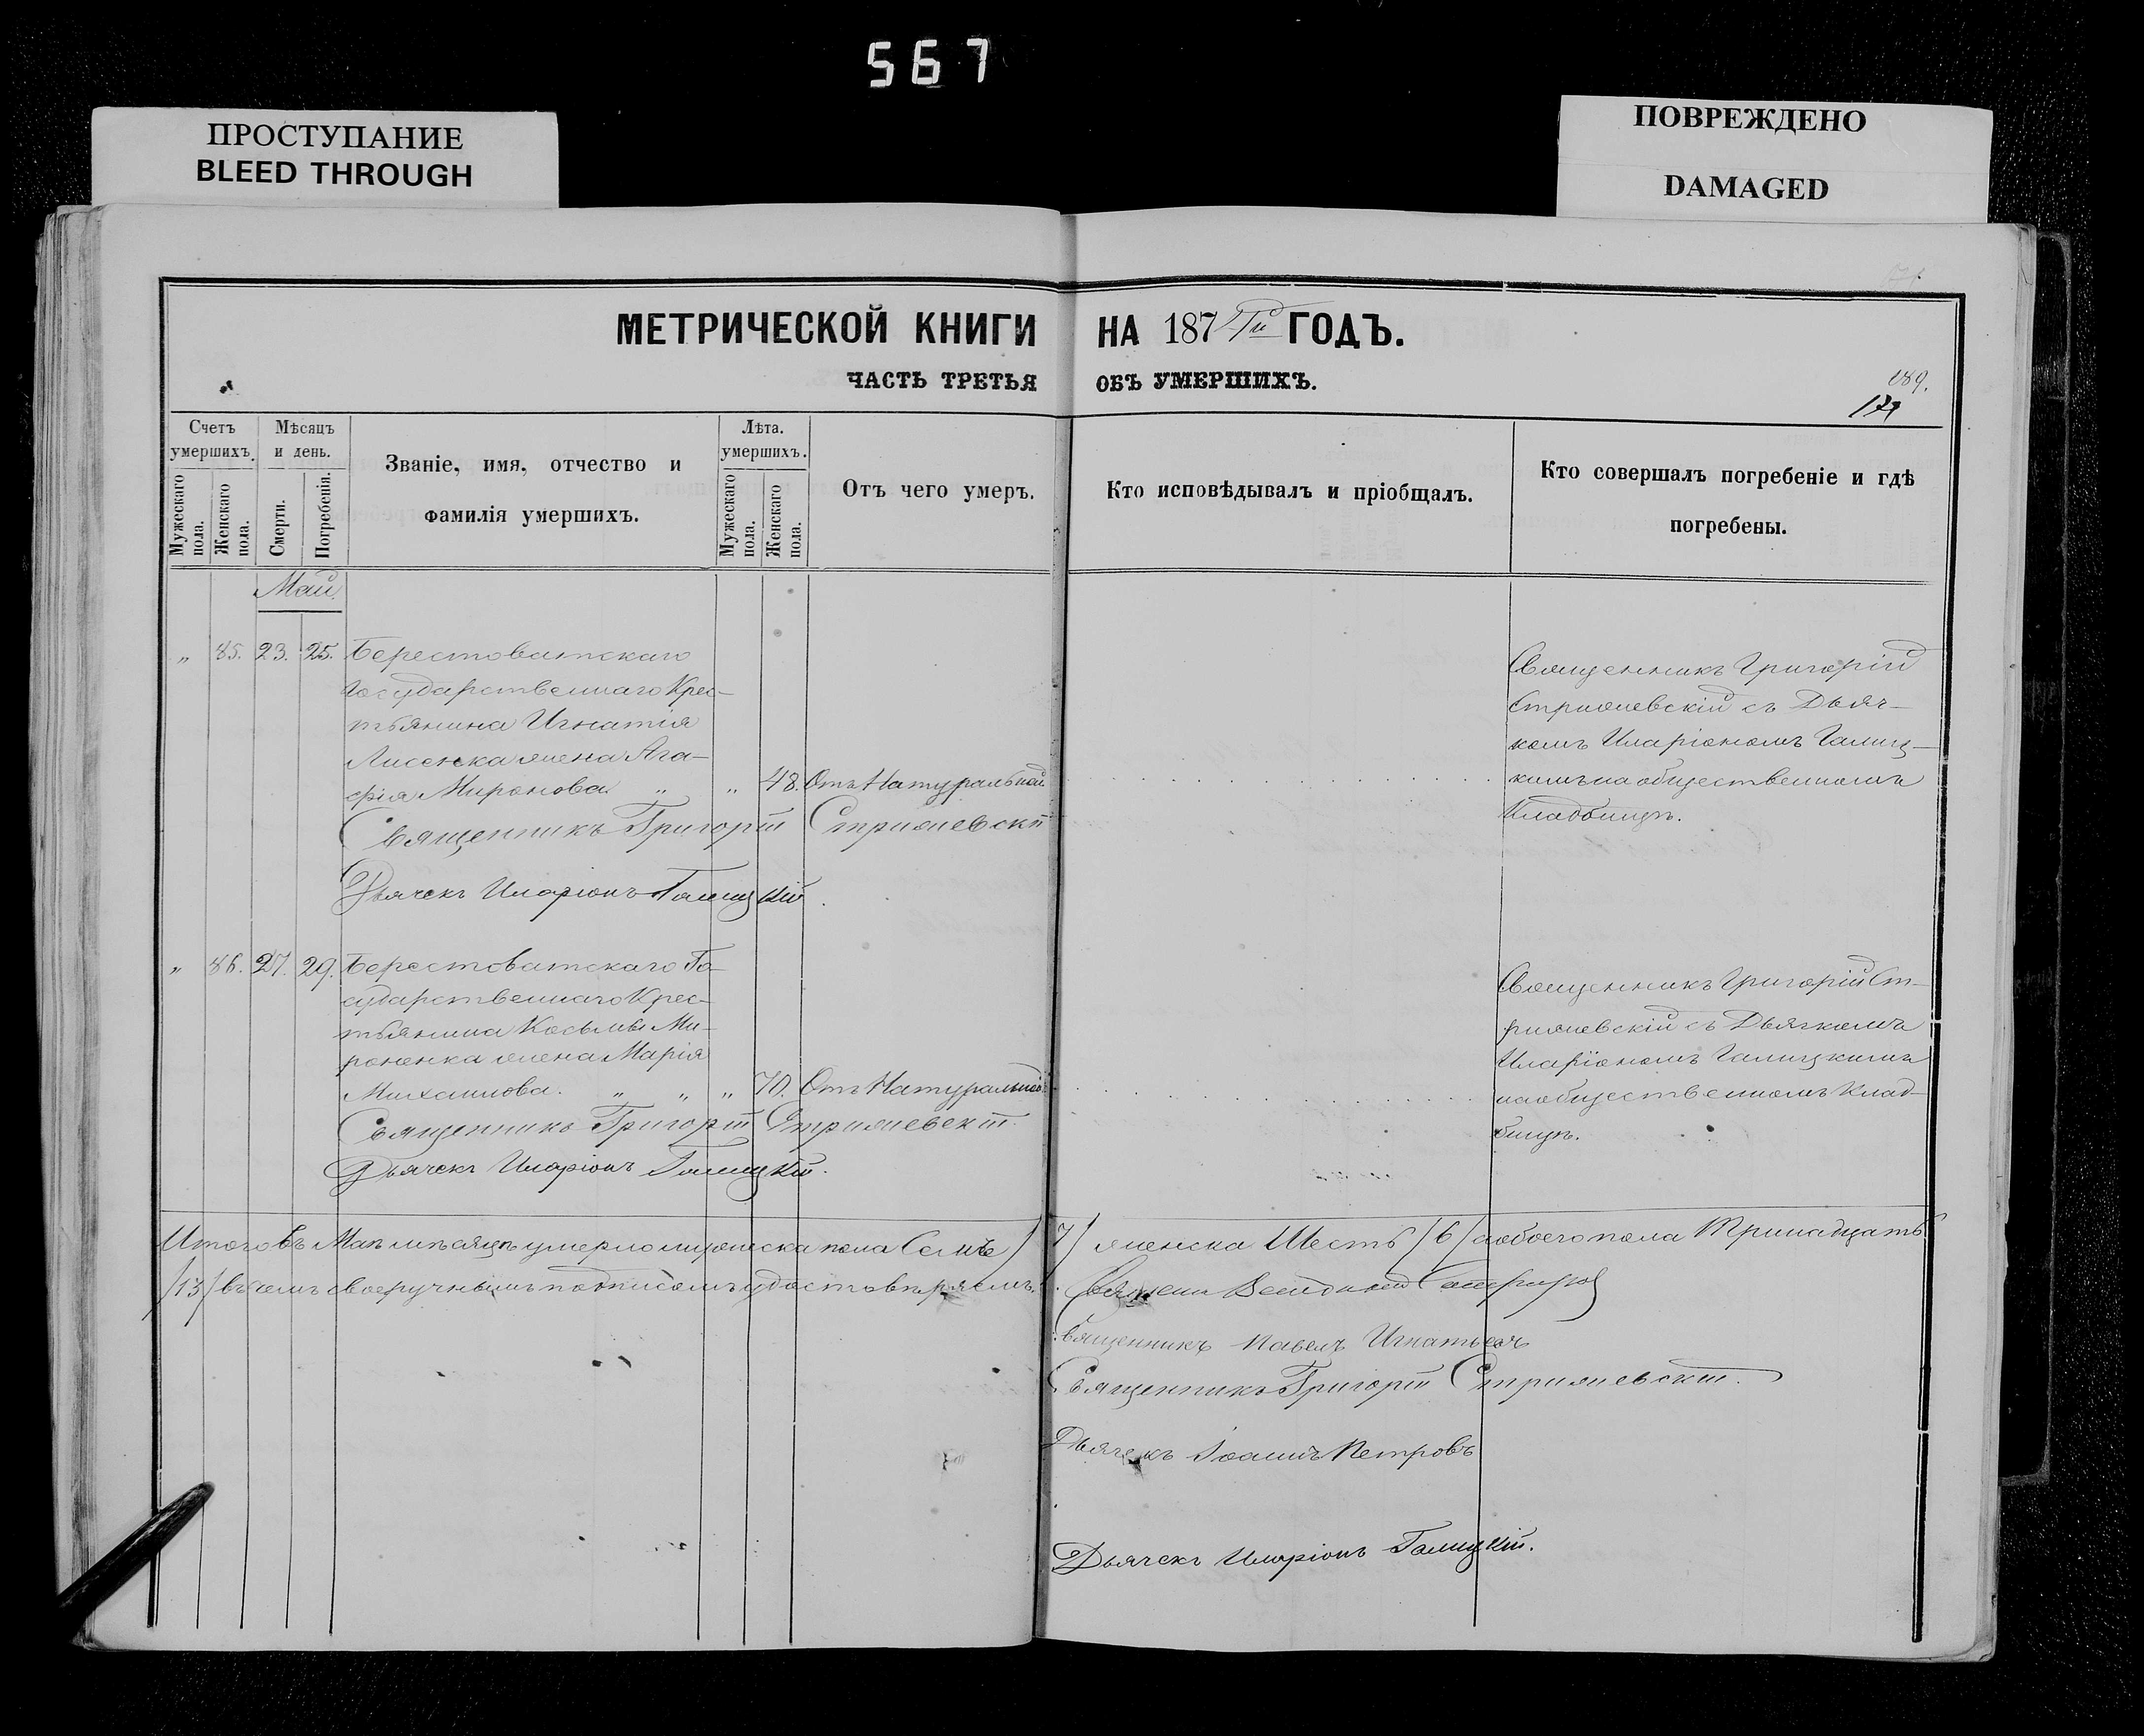 567
ПРОСТУПАНИЕ
BLEED THROUGH
ПОВРЕЖДЕНО
DAMAGED
МЕТРИЧЕСКОЙ КНИГИ НА 187 ГОДЪ.
ЧАСТЬ ТРЕТЬЯ ОБЪ УМЕРШИХЪ.
189.
Счетъ умершихъ.
Мужескаго пола.
Женскаго пола.
Мѣсяцъ и день.
Смерти.
Погребенія.
Званіе, имя, отчество и
фамилія умершихъ.
Лѣта.
умершихъ.
Мужескаго пола.
Женскаго пола.
Отъ чего умеръ.
Кто исповѣдывалъ и пріобщалъ.
Кто совершалъ погребеніе и гдѣ
погребены.
Май
„ 85. 23. 25. Берестоватскаго
Государственнаго Крес-
тьянина Игнатія
Лисенка жена Ага-
фія Миронова „ „ 48. Отъ Натуральной
Священникъ Григорій
Стрижевскій съ Дьяч-
комъ Иларіономъ Галиц-
кимъ на общественномъ
Кладбищѣ.
Священникъ Григорій Стрижевскій
Дьячекъ Иларіонъ Галицкій.
„ 86. 27. 29. Берестоватскаго Го-
сударственнаго Крес-
тьянина Косьмы Ми-
роненка жена Марія
Михаилова. „ „ „ 70. Отъ Натуральной
Священникъ Григорій Ст-
рижевскій съ Дьячкомъ
Иларіономъ Галицкимъ
на общественномъ Клад-
бищѣ.
Священникъ Григорій Стрижевскій.
Дьячекъ Иларіонъ Галицкій.
Итого въ Маѣ мѣсяцѣ умерло мужеска пола Семь /7/ женска Шесть /6/ а обоего пола Тринадцать
/13/ въ чемъ своеручнымъ подписомъ удостовѣряемъ.
Священникъ Павелъ Игнатьевъ
Священникъ Григорій Стрижевскій.
Дьячекъ Іоаннъ Петровъ
Дьячекъ Иларіонъ Галицкій.